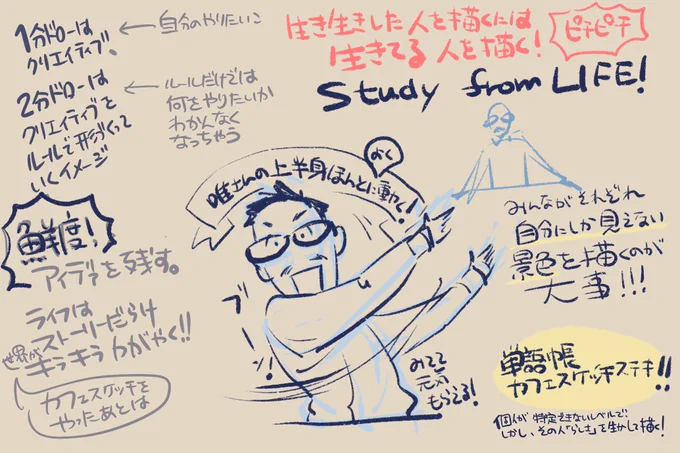 1分ドローは
クリエイティブ、
←自分のやりたいこ
2分ドローは
クリエイティブを
ルールで形づくって
いくイメージ
←ルールだけでは
何をやりたいか
わかんなく
なっちゃう
生き生きした人を描くには
生きてる人を描く!
ピチピチ
Study from LIFE!
唯さんの上半身ほんとに動く!
よく
鮮度!
アイデアを残す。
ライフは
ストーリーだらけ
世界が
キラキラ かがやく!!
カフェスケッチを
やったあとは
ブ!
みてて
元気
もらえる!
みんながそれぞれ
自分にしか見えない
景色を描くのが
大事!!!
単語帳
カフェスケッチステキ!!
個人が特定できないレベルで、
しかし、その人「らしさ」を生かして描く!